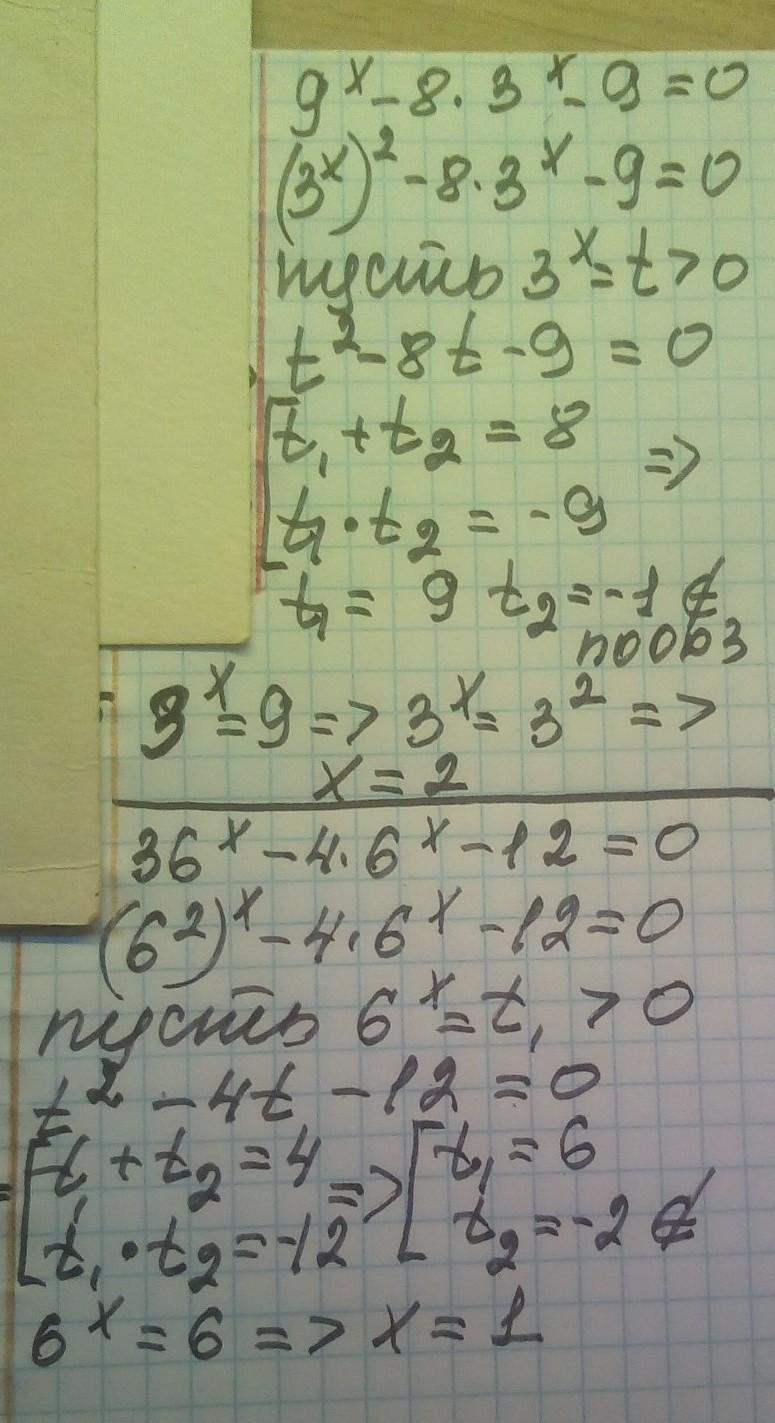 9^x - 8 · 3^x - 9 = 0
(3^x)^2 - 8 · 3^x - 9 = 0
пусть 3^x = t > 0
t^2 - 8t - 9 = 0
[ t_1 + t_2 = 8
t_1 · t_2 = -9 =>
t_1 = 9 t_2 = -1 ∉
по ОБЗ
3^x = 9 => 3^x = 3^2 =>
x = 2
36^x - 4 · 6^x - 12 = 0
(6^2)^x - 4 · 6^x - 12 = 0
пусть 6^x = t_1 > 0
t^2 - 4t - 12 = 0
[ t_1 + t_2 = 4 => [ t_1 = 6
t_1 · t_2 = -12 t_2 = -2 ∉
6^x = 6 => x = 1